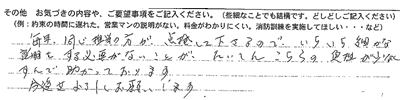 その他　お気づきの内容や、ご要望事項をご記入ください。（些細なことでも結構です。どしどしご記入ください）
（例：約束の時間に遅れた。営業マンの説明がない。料金がわかりにくい。消防訓練を実施してほしい・・・など）
毎年、同じ担当の方が点検して下さるので、いちいち細かな
説明をする必要がないことが、たいへんこちらの負担が少な
すんで助かっております。
今後もよろしくお願いします。